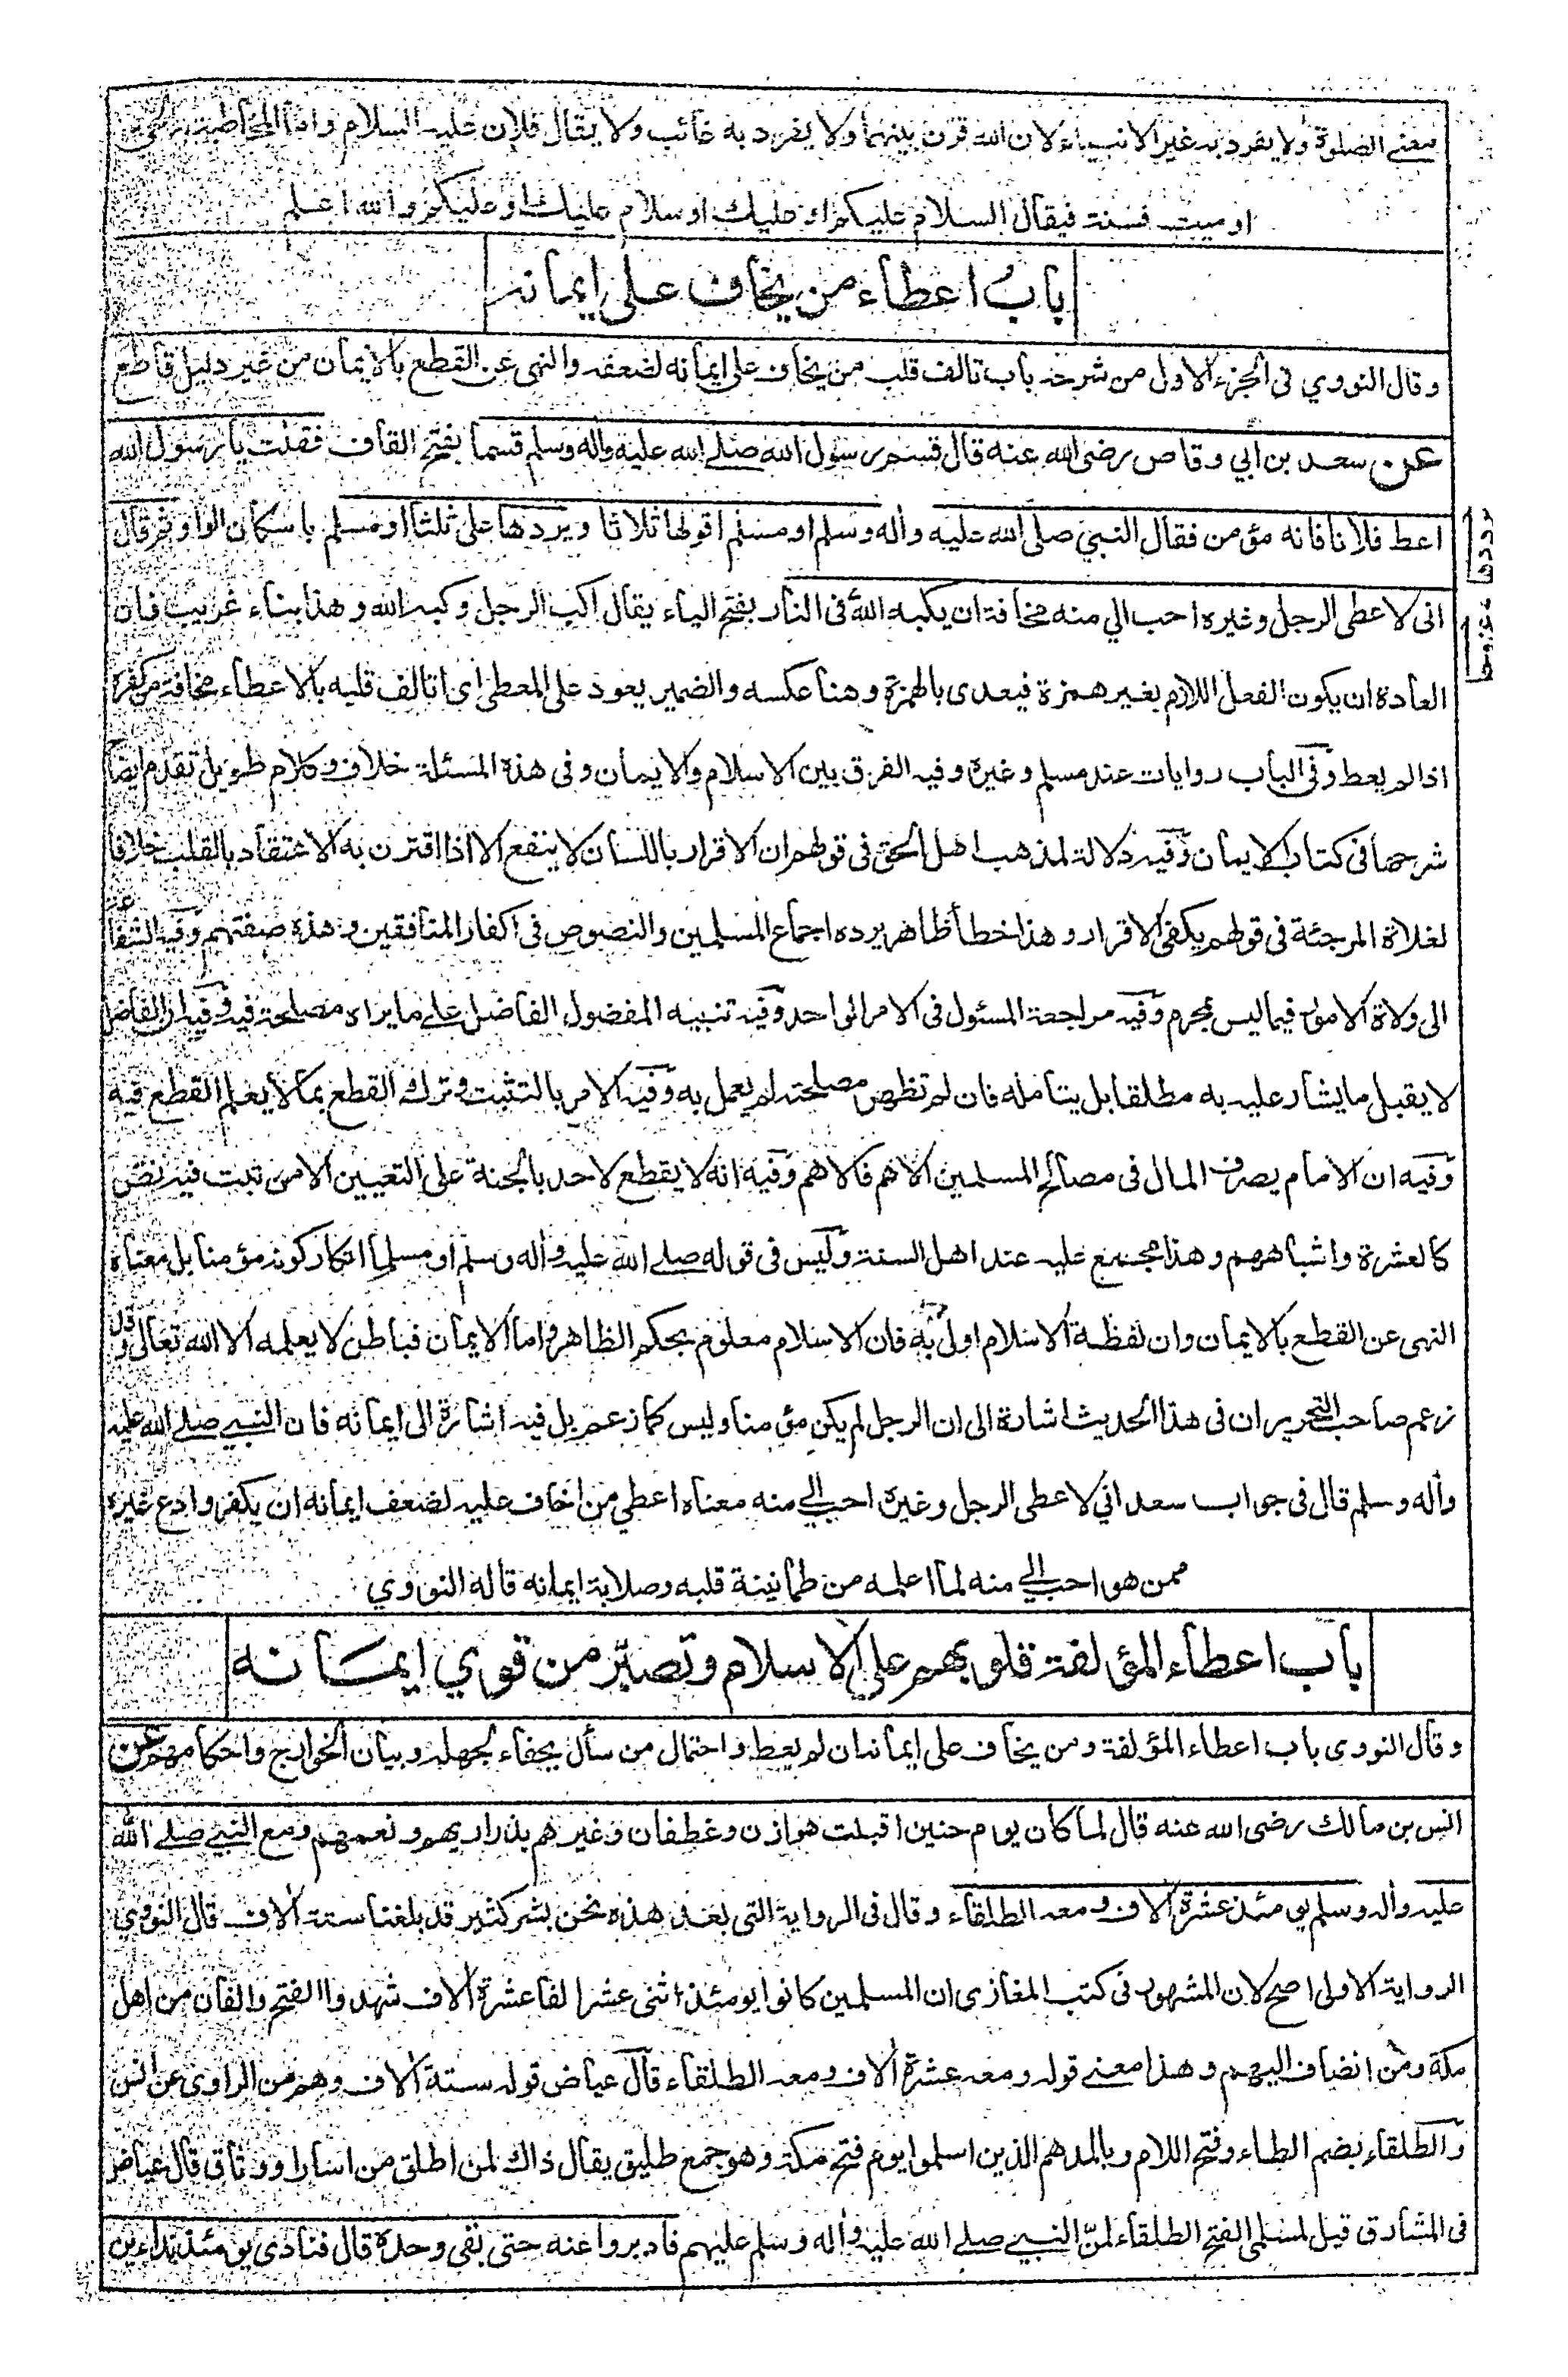 معنى الصلوة ولا يفرد به غير الانبياء لان الله قرن بينهما ولا يفرد به غائب ولا يقال فلان عليه السلام واما المخاطبة به لحي
او ميت فسنة فيقال السلام عليكم او عليك او سلام عليك او عليكم والله اعلم
باب اعطاء من يخاف على ايمانه
وقال النووي فى الجزء الاول من شرحه باب تالف قلب من يخاف على ايمانه لضعفه والنهى عن القطع بالايمان من غير دليل قاطع
عن سعد بن ابي وقاص رضى الله عنه قال قسم رسول الله صلے الله عليه واله وسلم قسما بفتح القاف فقلت يا رسول الله
اعط فلانا فانه مؤمن فقال النبي صلى الله عليه واله وسلم او مسلم اقولها ثلاثا ويردها على ثلثا او مسلم باسكان الواو ثم قال
انى لاعطى الرجل وغيره احب الي منه مخافة ان يكبه الله فى النار بفتح الياء يقال اكب الرجل وكبه الله وهذا بناء غريب فان
العادة ان يكون الفعل اللازم بغير همزة فيعدى بالهمزة وهنا عكسه والضمير يعود على المعطى اى اتالف قلبه بالاعطاء مخافة من كفره
اذا لم يعط وفى الباب روايات عند مسلم وغيره وفيه الفرق بين الاسلام والايمان وفى هذه المسئلة خلاف وكلام طويل تقدم ايضاح
شرحها فى كتاب الايمان وفيه دلالة لمذهب اهل الحق فى قولهم ان الاقرار باللسان لا ينفع الا اذا اقترن به الاعتقاد بالقلب خلافا
لغلاة المرجئة فى قولهم يكفى الاقرار وهذا خطأ ظاهر يرده اجماع المسلمين والنصوص فى اكفار المنافقين وهذه صفتهم وفيه الشفاعة
الى ولاة الامور فيما ليس بمحرم وفيه مراجعة المسئول فى الامر الواحد وفيه تنبيه المفضول الفاضل على ما يراه مصلحة فيه وفيه ان الفاضل
لا يقبل ما يشار عليه به مطلقا بل يتامله فان لم تظهر مصلحته لم يعمل به وفيه الامر بالتثبت وترك القطع بما لا يعلم القطع فيه
وفيه ان الامام يصرف المال فى مصالح المسلمين الاهم فالاهم وفيه انه لا يقطع لاحد بالجنة على التعيين الا من ثبت فيه نص
كالعشرة واشباههم وهذا مجمع عليه عند اهل السنة وليس فى قوله صلے الله عليه واله وسلم او مسلما انكار كونه مؤمنا بل معناه
النهى عن القطع بالايمان وان لفظة الاسلام اولى به فان الاسلام معلوم بحكم الظاهر واما الايمان فباطن لا يعلمه الا الله تعالى وقد
زعم صاحب التحرير ان فى هذا الحديث اشارة الى ان الرجل لم يكن مؤمنا وليس كما زعم بل فيه اشارة الى ايمانه فان النبى صلے الله عليه
واله وسلم قال فى جواب سعد اني لاعطى الرجل وغيره احب الي منه معناه اعطي من اخاف عليه لضعف ايمانه ان يكفر وادع غيره
ممن هو احب الي منه لما اعلمه من طمانينة قلبه وصلابة ايمانه قاله النووي
باب اعطاء المؤلفة قلوبهم على الاسلام وتصبّر من قوي ايمانه
وقال النووى باب اعطاء المؤلفة ومن يخاف على ايمانه ان لم يعط واحتمال من سأل بجفاء لجهله وبيان الخوارج واحكامهم عن
انس بن مالك رضى الله عنه قال لما كان يوم حنين اقبلت هوازن وغطفان وغيرهم بذراريهم ونعمهم ومع النبى صلے الله
عليه واله وسلم يومئذ عشرة الاف ومعه الطلقاء وقال فى الرواية التى بعد هذه نحن بشر كثير قد بلغنا ستة الاف قال النووي
الرواية الاولى اصح لان المشهور فى كتب المغازى ان المسلمين كانوا يومئذ اثنى عشر الفا عشرة الاف شهدوا الفتح والفان من اهل
مكة ومن انضاف اليهم وهذا معنى قوله ومعه عشرة الاف ومعه الطلقاء قال عياض قوله ستة الاف وهم من الراوى عن انس
والطلقاء بضم الطاء وفتح اللام وبالمد هم الذين اسلموا يوم فتح مكة وهو جمع طليق يقال ذاك لمن اطلق من اسار او وثاق قال عياض
فى المشارق قيل لمسلمى الفتح الطلقاء لمنّ النبى صلے الله عليه واله وسلم عليهم فادبروا عنه حتى بقى وحده قال فنادى يومئذ نداءين